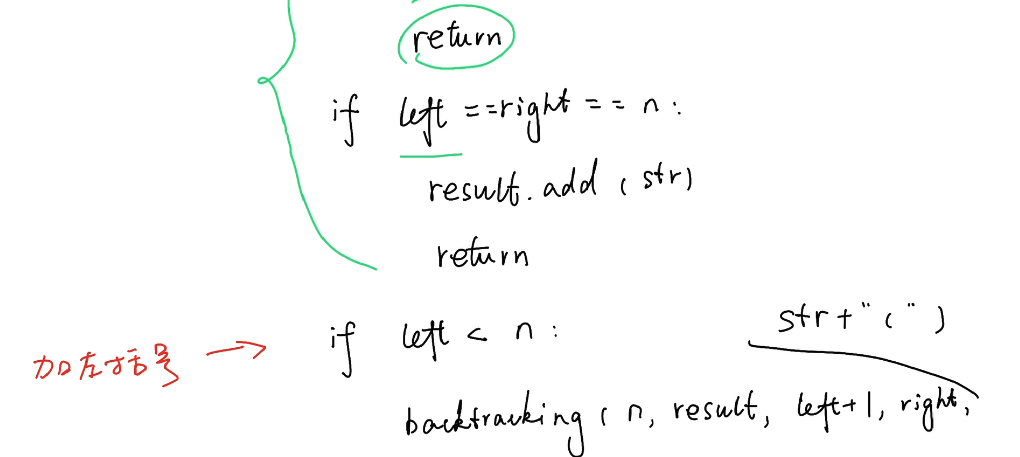 return
if left ==right == n:
result.add (str)
return
加左括号 → if left < n:
str+"(")
backtracking (n, result, left+1, right,